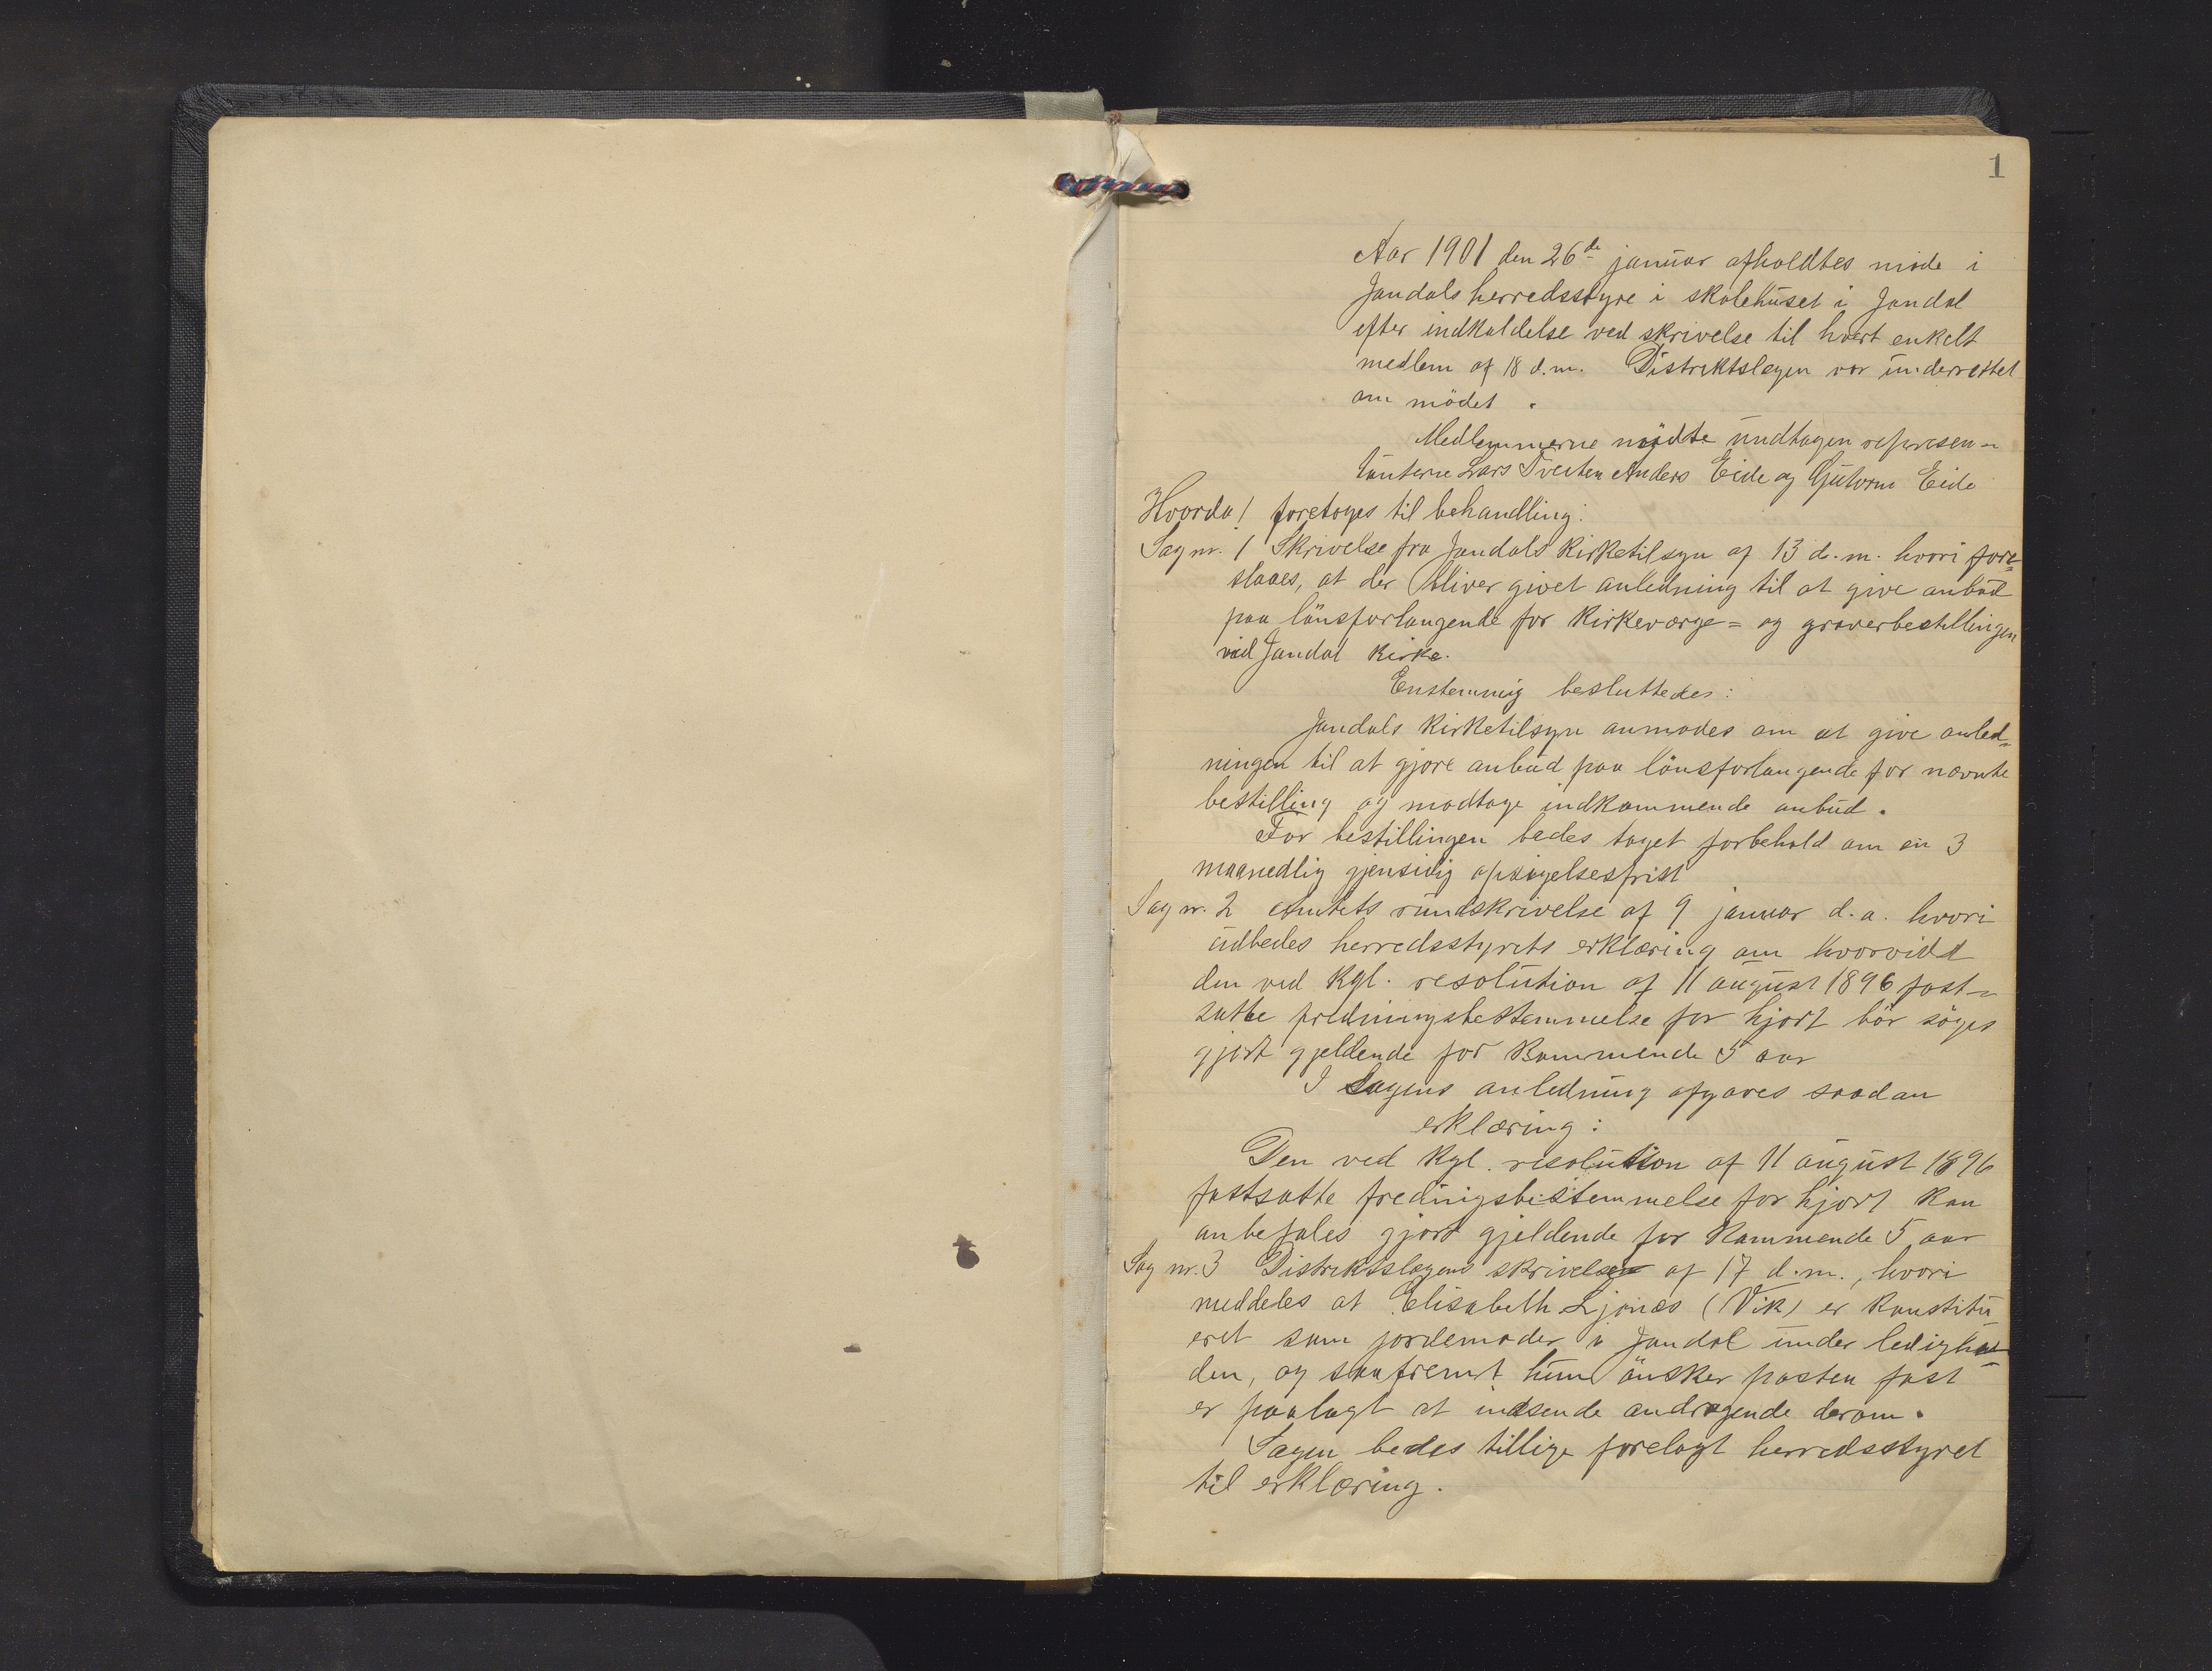 1
Aar 1901 den 26de januar afholdtes möde i
Jondals herredsstyre i skolehuset i Jondal
efter indkaldelse ved skrivelse til hvert enkelt
medlem af 18 d.m. Distriktslægen var underrettet
om mödet.
Medlemmerne mödte undtagen represen-
tanterne Lars Tveiten Anders Eide og Guttorm Eide
Hvorda! foretoges til behandling:
Sag nr. 1 Skrivelse fra Jondals kirketilsyn af 13 d.m. hvori fore-
slaaes, at der bliver givet anledning til at give anbud
paa lönsforlangende for kirkeværge= og graverbestillingen
ved Jondal kirke.
Enstemmig besluttedes:
Jondals kirketilsyn anmodes om at give anled-
ningen til at gjöre anbud paa lönsforlangende for nævnte
bestilling og modtage indkommende anbud.
For bestillingen bedes taget forbehold om en 3
maanedlig gjensidig opsigelsesfrist
Sag nr. 2 Amtets rundskrivelse af 9 januar d.a. hvori
udbedes herredsstyrets erklæring om hvorvidt
den ved kgl. resolution af 11 august 1896 fast-
satte fredningsbestemmelse for hjort bör söges
gjort gjeldende for kommende 5 aar
I sagens anledning afgaves saadan
erklæring:
Den ved kgl. resolution af 11 august 1896
fastsatte fredningsbestemmelse for hjort kan
anbefales gjort gjeldende for kommende 5 aar
Sag nr. 3 Distriktslægens skrivelse af 17 d.m., hvori
meddeles at Elisabeth Ljonæs (Vik) er konstitu
eret som jordemoder i Jondal under ledighe-
den, og saafremt hun önsker posten fast
er paalagt at indsende andragende derom.
Sagen bedes tillige forelagt herredsstyret
til erklæring.